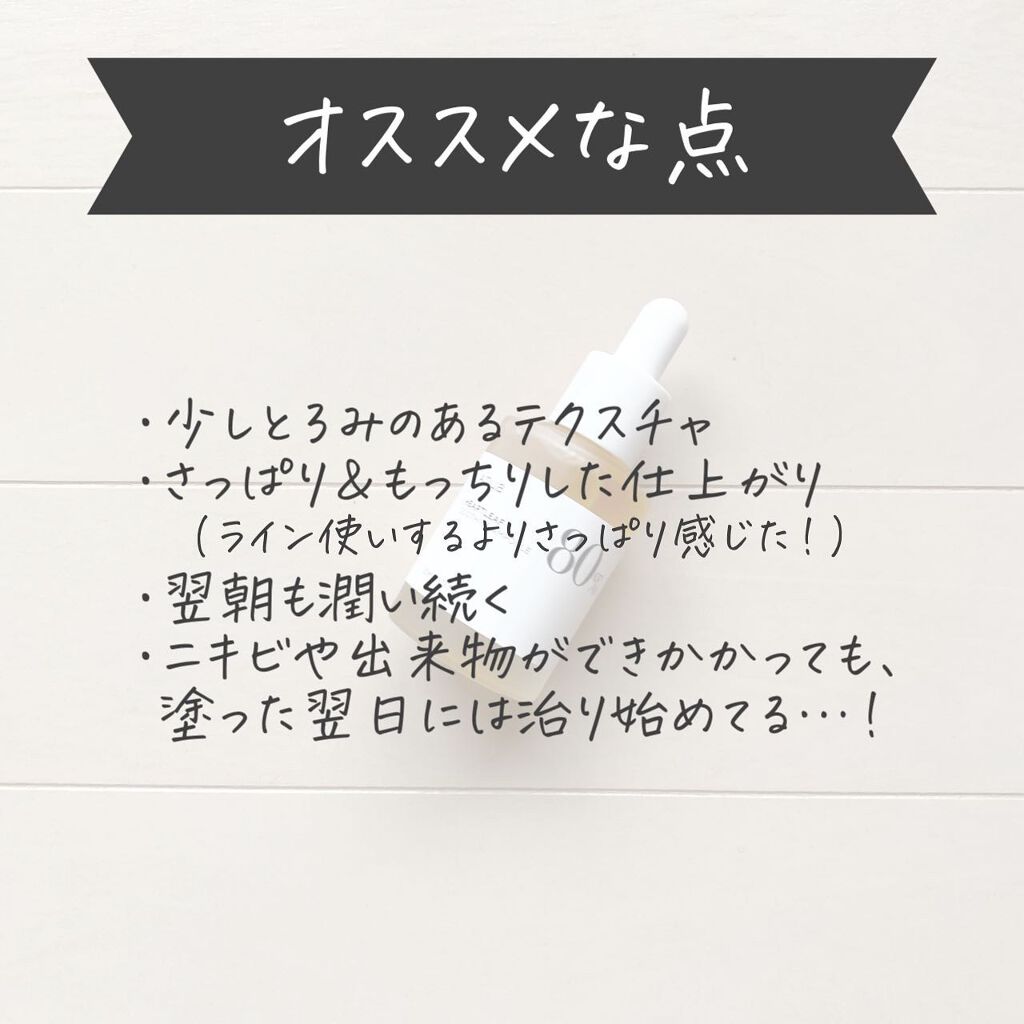 オススメな点
・少しとろみのあるテクスチャ
・さっぱり&もっちりした仕上がり
(ライン使いするよりさっぱり感じた!)
・翌朝も潤い続く
・ニキビや出来物ができかかっても、
塗った翌日には治り始めてる…!
80